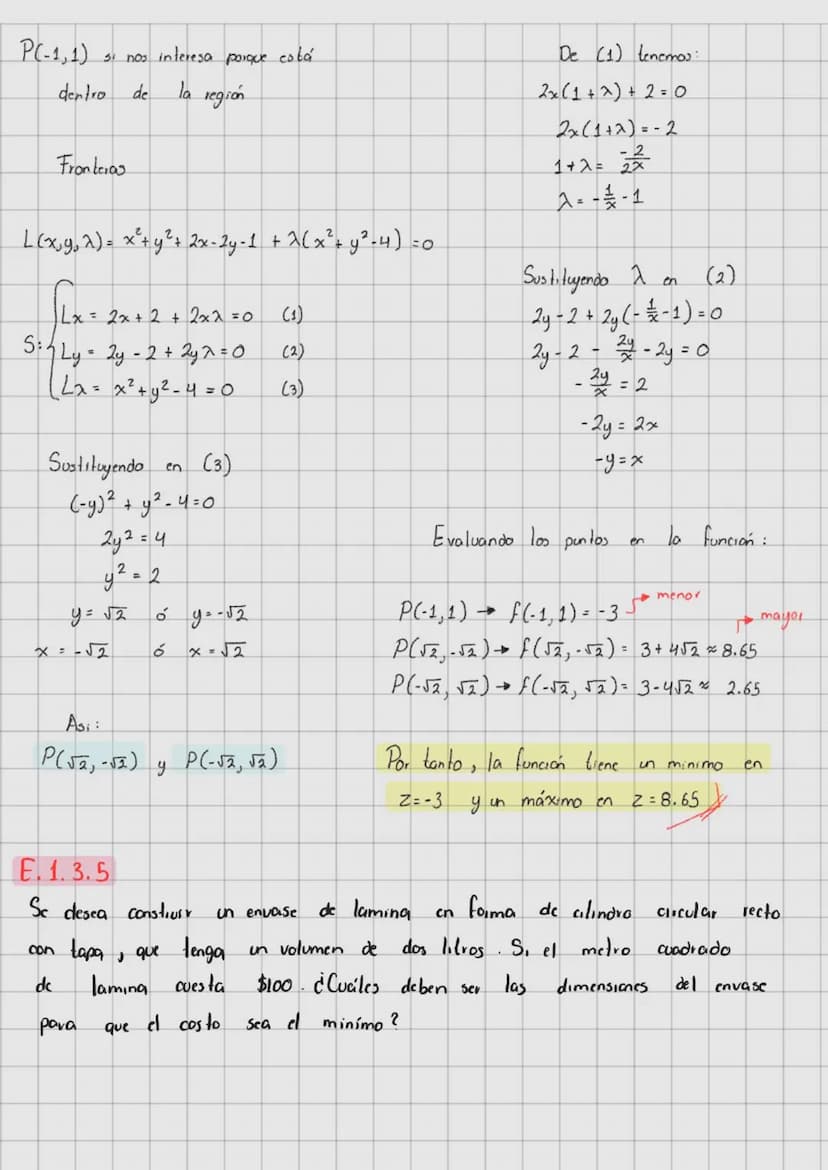 P(-1,1) si nos interesa porque está
dentro de la región
Fronteras
L(x,y,λ)= x²+y²+ 2x-2y-1 + λ(x²+y²-4) =0
S: { Lx = 2x + 2 + 2xλ =0 (1)
Ly = 2y - 2 + 2yλ=0 (2)
Lλ = x²+y²-4 = 0 (3)
De (1) tenemos:
2x(1+λ) + 2 = 0
2x(1+λ) = -2
1+λ = -2/2x
λ = -1/x -1
Sustituyendo λ en (2)
2y - 2 + 2y(-1/x -1) = 0
2y - 2 - 2y/x - 2y = 0
- 2y/x = 2
-2y = 2x
-y = x
Sustituyendo en (3)
(-y)² + y² - 4 = 0
2y² = 4
y² = 2
y = √2 ó y = -√2
x = -√2 ó x = √2
Asi:
P(√2,-√2) y P(-√2,√2)
Evaluando los puntos en la función:
P(-1,1) → f(-1,1) = -3 → menor
→ mayor
P(√2,-√2) → f(√2,-√2) = 3+4√2 ≈ 8.65
P(-√2,√2) → f(-√2,√2) = 3-4√2 ≈ 2.65
Por tanto, la función tiene un minimo en
z=-3 y un máximo en z=8.65
E.1.3.5
Se desea construir un envase de lamina en forma de cilindro circular recto
con tapa, que tenga un volumen de dos litros. Si el metro cuadrado
de lamina cuesta $100. ¿Cuáles deben ser las dimensiones del envase
para que el costo sea el minímo?